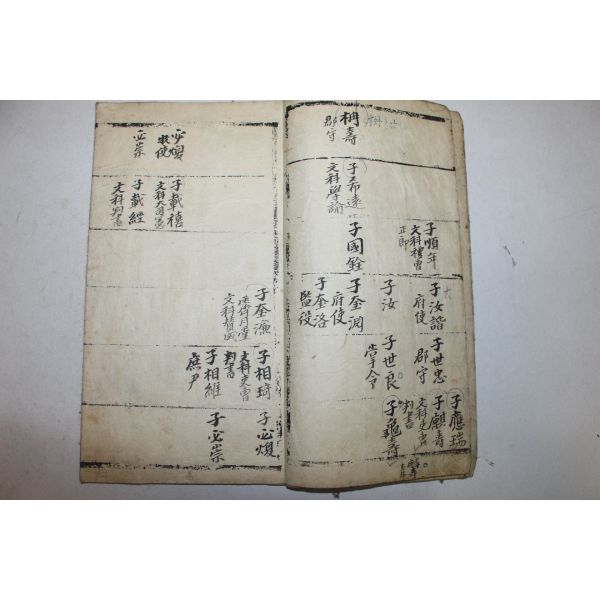 柟壽
郡守
子希遠
文科學諭
子順年
文科禮曹
正郎
子國銓
子汝諧
府使
子汝
子奎淵
府使
子奎洛
監役
子世忠
郡守
子世良
子應瑞
子麒壽
文科吏曹
判書
子龜壽
子奎濂
文科
子相琦
文科吏曹
判書
子相維
庶尹
子必煥
子必崇
必煥
必崇
子載禧
子載經
文科判書